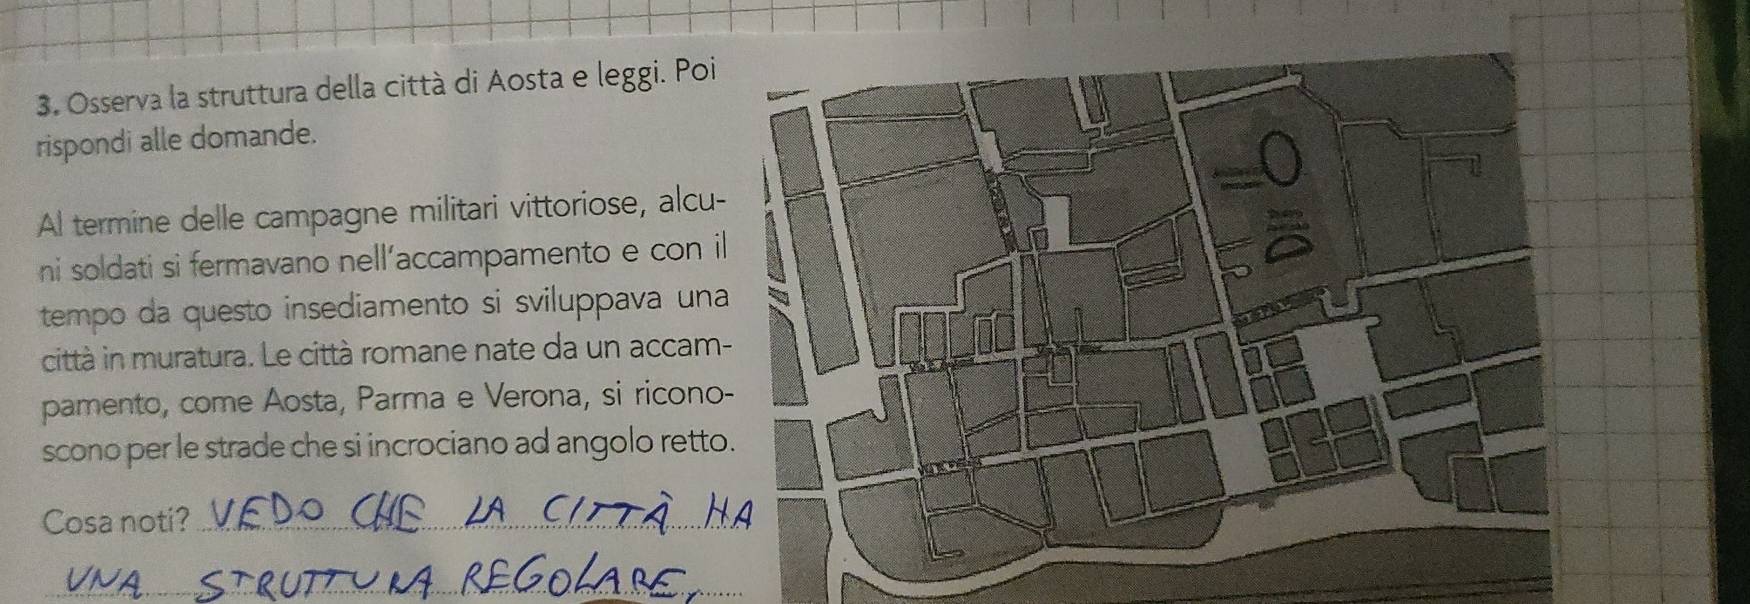 3. Osserva la struttura della città di Aosta e leggi. Poi
rispondi alle domande.
Al termine delle campagne militari vittoriose, alcu-
ni soldati si fermavano nell'accampamento e con il
tempo da questo insediamento si sviluppava una
città in muratura. Le città romane nate da un accam-
pamento, come Aosta, Parma e Verona, si ricono-
scono per le strade che si incrociano ad angolo retto.
Cosa noti? VEDO CHE LA CITTÀ HA
UNA STRUTTURA REGOLARE,